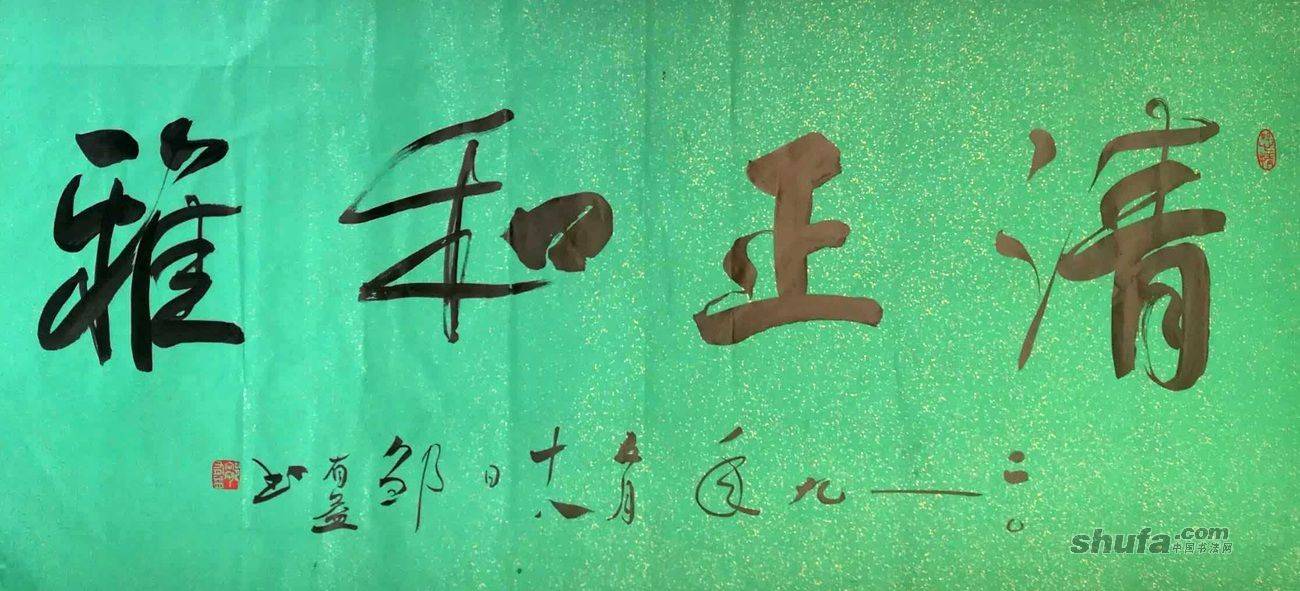 清正和雅
二〇一九年五月十八日邹有益书
shufa.com
中国书法网